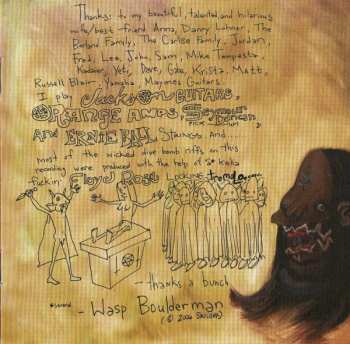 Thanks: to my beautiful, talented and hilarious
wife/best friend Anna, Danny Lohner, The
Borland Family, The Carlisle Family, Jordan,
Fred, Lee, John, Sam, Mike Tempesta,
Yeti, Dave, Gabe, Krista, Matt,
Russell Blair, Yamaha, Maximes Guitars.
I play Jackson GUITARS,
ORANGE AMPS, Seymour Duncan
PICK UPS
AND ERNIE BALL Strings. And...
most of the wicked dive bomb riffs on this
recording were produced with the help of
fuckin' Floyd Rose Locking tremolo
- thanks a bunch
- Wasp Boulderman
(© 2006